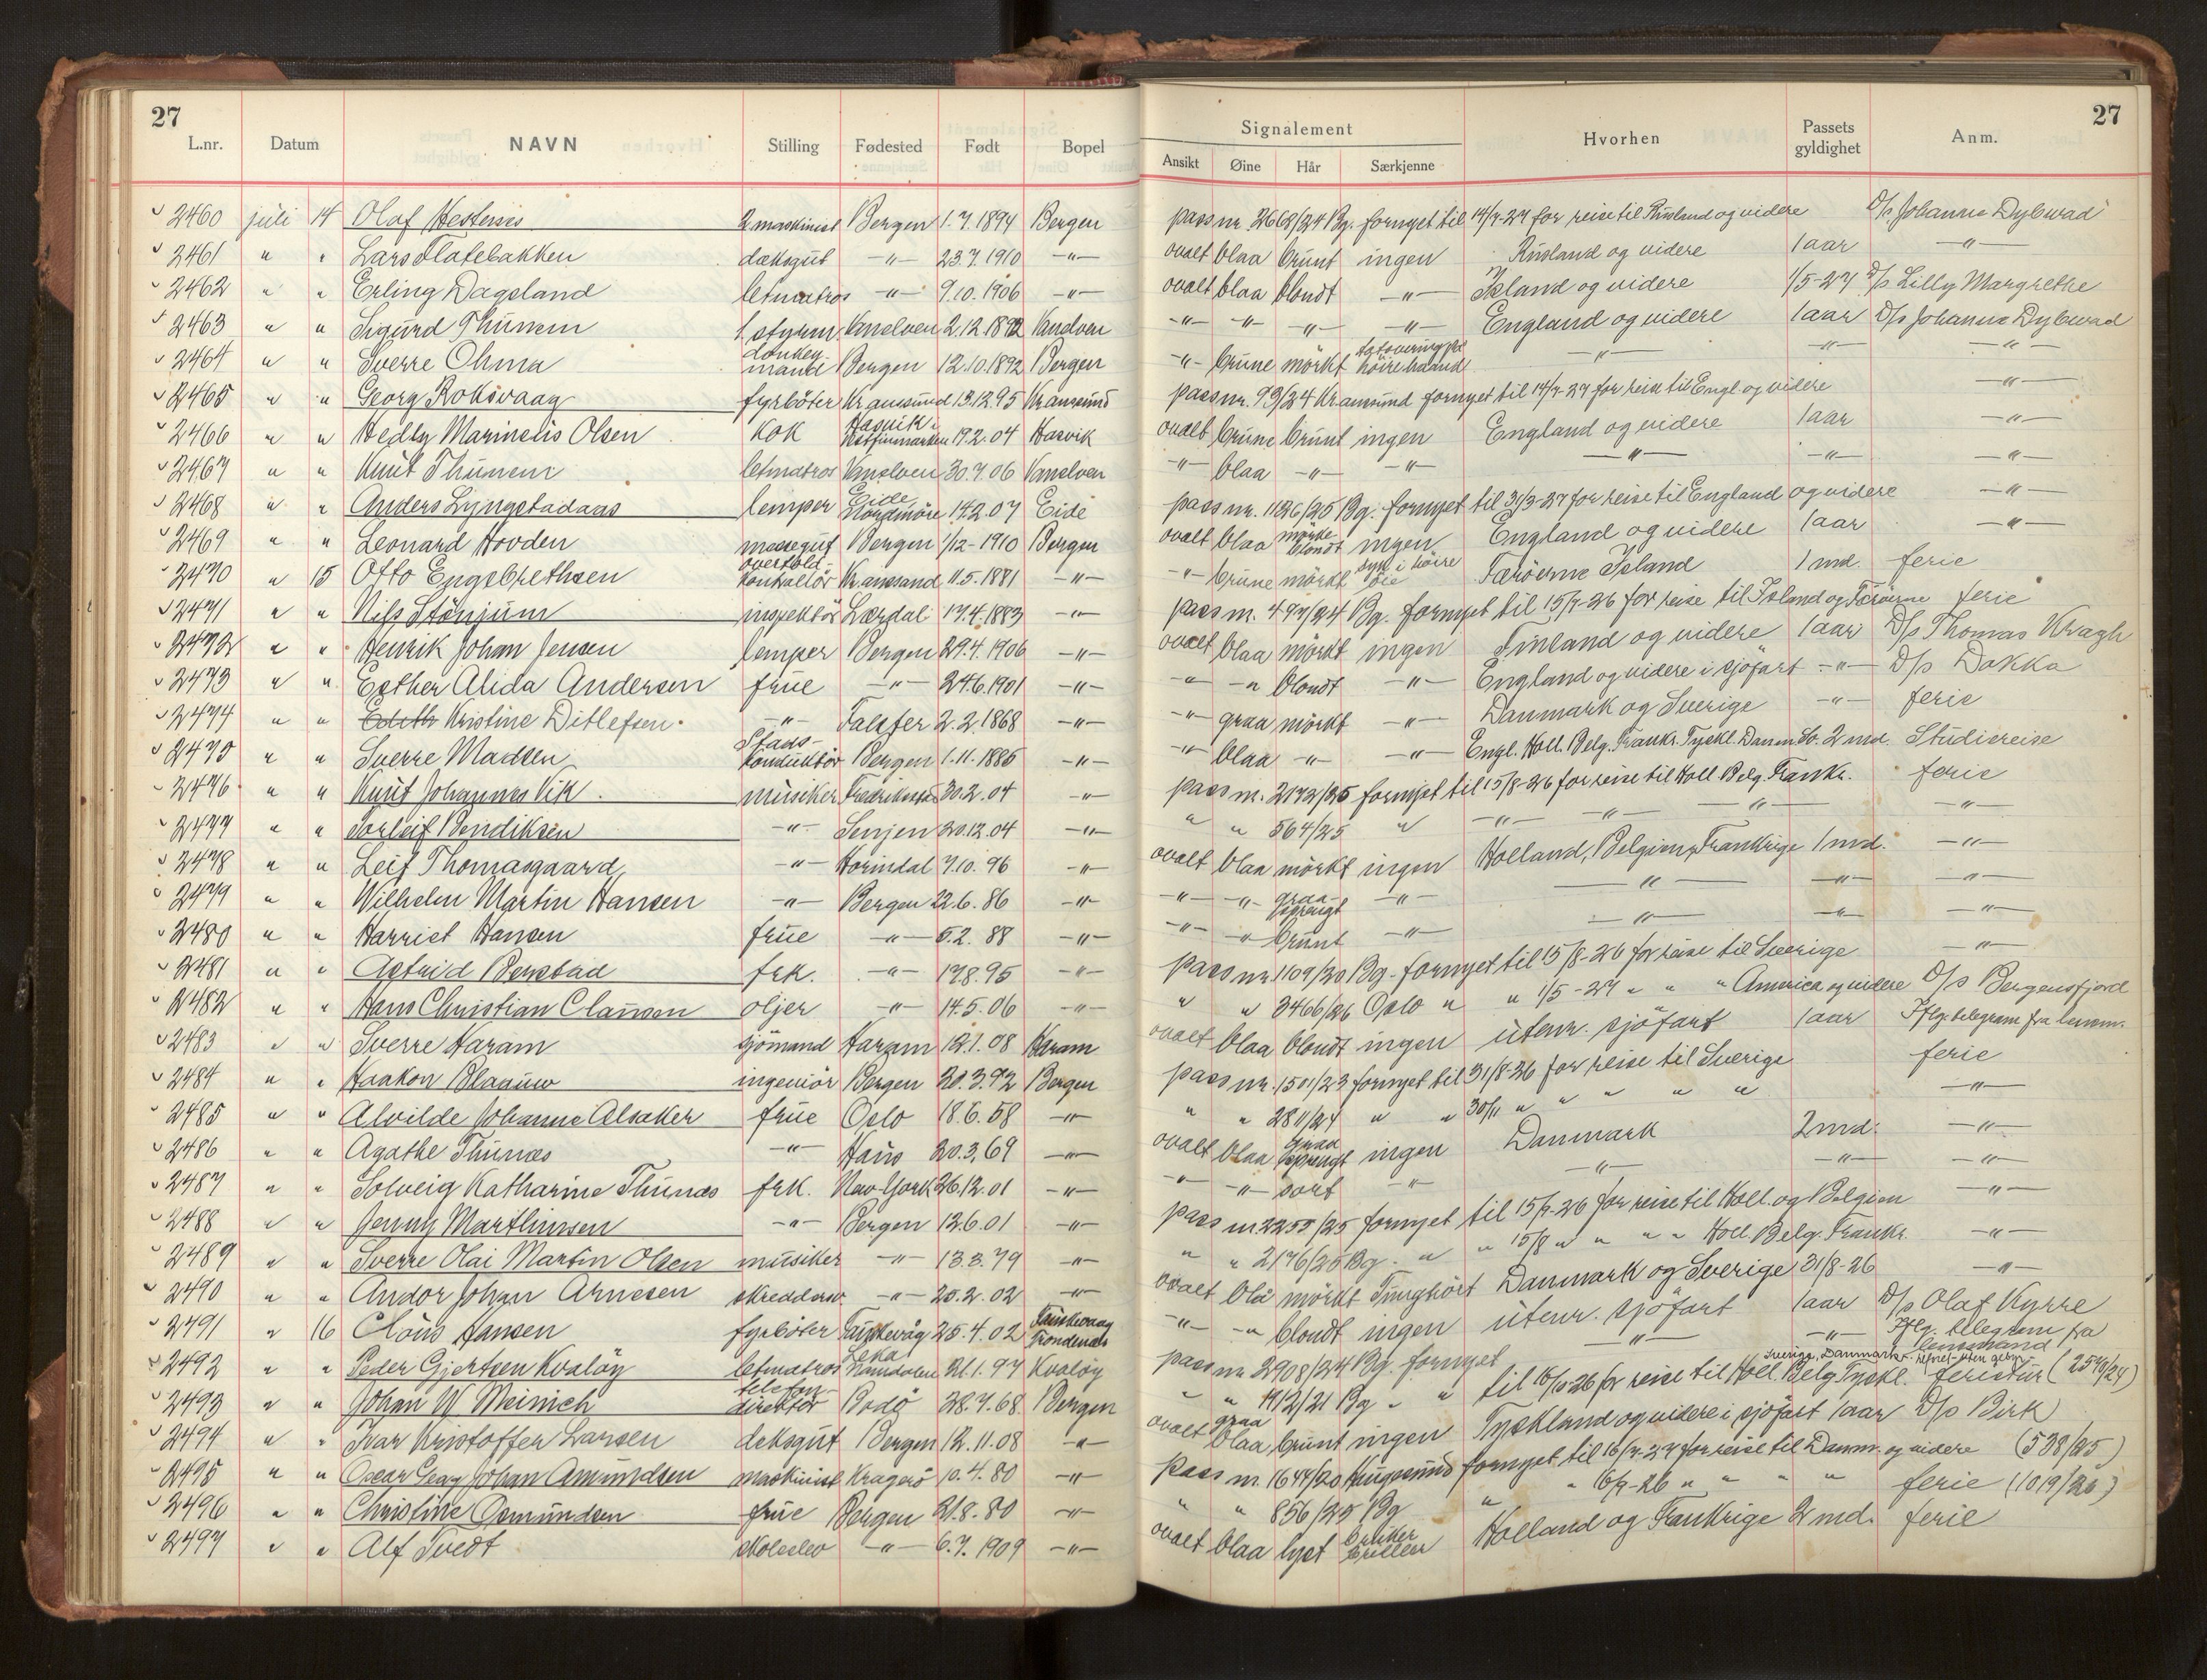 27
L.nr. Datum NAVN Stilling Fødested Født Bopel
2460 juli 14 Olaf Hestenes 2 maskinist Bergen 1.7.1894 Bergen
2461 " " Lars Flatebakken dæksgut -"- 23.7.1910 -"-
2462 " " Erling Dagsland letmatros -"- 9.10.1906 -"-
2463 " " Sigurd Thunem 1. styrm. Vanelven 2.12.1892 Vanelven
2464 " " Sverre Ohma donkey-mand Bergen 12.10.1892 Bergen
2465 " " Georg Roksvaag fyrböter Kr.ansund 13.12.95 Kr.ansund
2466 " " Hedly Marinelis Olsen kok Hasvik i Vestfinmarken 19.2.04 Hasvik
2467 " " Knut Thunem letmatros Vanelven 30.7.06 Vanelven
2468 " " Anders Lyngstadaas lemper Eide Nordmöre 14.2.07 Eide
2469 " " Leonard Hovden messegut Bergen 1/12-1910 Bergen
2470 " 15 Otto Engebrethsen overtold-kontrollör Kr.anssand 11.5.1881 -"-
2471 " " Nils Stönjum inspektör Lærdal 17.4.1883 -"-
2472 " " Henrik Johan Jensen lemper Bergen 29.4.1906 -"-
2473 " " Esther Alida Andersen frue -"- 24.6.1901 -"-
2474 " " Edith Kristine Ditlefsen -"- Falster 2.2.1868 -"-
2475 " " Sverre Madsen Stads-konduktör Bergen 1.11.1885 -"-
2476 " " Knut Johannes Vik musiker Fredrikstad 30.2.04 -"-
2477 " " Torleif Bendiksen -"- Senjen 20.12.04 -"-
2478 " " Leif Thomasgaard -"- Hornindal 7.10.96 -"-
2479 " " Wilhelm Martin Hansen -"- Bergen 22.6.86 -"-
2480 " " Harriet Hansen frue -"- 5.2.88 -"-
2481 " " Astrid Benstad frk. -"- 17.8.95 -"-
2482 " " Hans Christian Clausen oljer -"- 14.5.06 -"-
2483 " " Sverre Haram sjömand Haram 12.1.08 Haram
2484 " " Haakon Blaauw ingeniör Bergen 20.3.92 Bergen
2485 " " Alvilde Johanne Alsaker frue Oslo 18.6.58 -"-
2486 " " Agathe Thunæs -"- Haus 20.3.69 -"-
2487 " " Solveig Katharine Thunæs frk. New York 26.12.01 -"-
2488 " " Jenny Marthinsen -"- Bergen 12.6.01 -"-
2489 " " Sverre Olai Martin Olsen musiker -"- 13.3.79 -"-
2490 " " Andor Johan Arnesen skreddersv. -"- 20.2.02 -"-
2491 " 16 Claus Hansen fyrböter Fauskevåg 25.4.02 Fauskevaag Trondenæs
2492 " " Peder Gjertsen Kvalöy letmatros Leka Namdalen 21.1.97 Kvalöy
2493 " " Johan W Meinich telefon-direktör Bodö 28.7.68 Bergen
2494 " " Ivar Kristoffer Larsen deksgut Bergen 12.11.08 -"-
2495 " " Oscar Georg Johan Amundsen maskinist Kragerö 10.4.80 -"-
2496 " " Christine Osmundsen frue Bergen 21.8.80 -"-
2497 " " Alf Tvedt skoleelev -"- 6.7.1909 -"-
27
Signalement Hvorhen Passets gyldighet Anm.
Ansikt Øine Hår Særkjenne
pass nr. 2668/24 Bg. fornyet til 14/7-27 for reise til Rusland og videre D/s Johanne Dybwad
ovalt blaa brunt ingen Rusland og videre 1 aar -"-
ovalt blaa blondt -"- Island og videre 1/5-27 D/s Lilly Margrethe
-"- -"- -"- -"- England og videre 1 aar D/s Johanne Dybwad
-"- brune mörkt tatovering på höire haand -"- -"- -"-
pass nr. 93/24 Kr.ansund fornyet til 14/7-27 for reise til Engl. og videre -"-
ovalt brune brunt ingen England og videre 1 aar -"-
-"- blaa -"- -"- -"- -"- -"-
pass nr. 1126/25 Bg. fornyet til 31/3-27 for reise til England og videre -"-
ovalt blaa mörke-blondt ingen England og videre 1 aar -"-
-"- brune mörkt syk i höire öie Færöerne Island 1 md. ferie
pass nr. 497/24 Bg. fornyet til 15/9-26 for reise til Island og Færöerne ferie
ovalt blaa mörkt ingen Finland og videre 1 aar D/s Thomas Kragh
-"- -"- blondt -"- England og videre i sjöfart -"- D/s Dokka
-"- graa mörkt -"- Danmark og Sverige -"- ferie
-"- blaa -"- -"- Engl. Holl. Belg. Frankr. Tyskl. Danm. Sv. 2 md. Studiereise
pass nr. 2172/25 fornyet til 15/8-26 for reise til Holl. Belg. Frankr. ferie
" " 564/25 " -"- -"- -"- -"-
ovalt blaa mörkt ingen Holland, Belgien, Frankrige 1 md. -"-
-"- -"- graa-sprengt -"- -"- -"- -"-
-"- -"- brunt -"- -"- -"- -"-
pass nr. 1109/20 Bg. fornyet til 15/8-26 for reise til Sverige -"-
" " 3466/26 Oslo " " 1/5-27 " " " America og videre D/s Bergensfjord
ovalt blaa blondt ingen utenr. sjöfart 1 aar Iflg. telegram fra lensm.
pass nr. 1501/23 fornyet til 31/8-26 for reise til Sverige ferie
" " 2811/24 " " 30/11 " " " " " -"-
ovalt blaa graa sprengt ingen Danmark 2 md. -"-
-"- -"- sort -"- -"- -"- -"-
pass nr. 2255/25 fornyet til 15/9-26 for reise til Holl. og Belgien -"-
" " 2176/25 Bg. " " 15/8 " " " " Holl. Belg. Frankr. -"-
ovalt blå mörkt Tunghört Danmark og Sverige 31/8-26 -"-
-"- -"- blondt ingen utenr. sjöfart 1 aar D/s Olaf Kyrre
pass nr. 2908/24 Bg. fornyet -"- -"- Iflg. telegram fra lensmand
Sverige, Danmark
" " 1912/21 Bg " " til 16/10-26 for reise til Holl. Belg. Tyskl. feristur (2540/24)
ovalt graa blaa brunt ingen Tyskland og videre i sjöfart 1 aar D/s Birk
pass nr. 1644/20 Haugesund fornyet til 16/7-27 for reise til Danm. og videre (538/25)
" " 856/25 Bg " " 16/9-26 " " " " ferie (1019/26)
ovalt blaa lyst bruker briller Holland og Frankrige 2 md. ferie